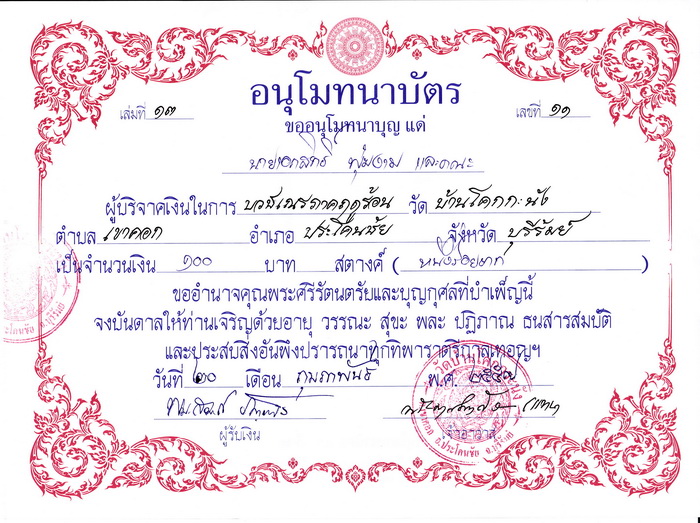 อนุโมทนาบัตร
เล่มที่ ๑๓ เลขที่ ๑๑
ขออนุโมทนาบุญ แด่
และคณะ
ผู้บริจาคเงินในการ บวชเณรภาคฤดูร้อน วัด บ้านโคกกะนัง
ตำบล เขาคอก อำเภอ ประโคนชัย จังหวัด บุรีรัมย์
เป็นจำนวนเงิน ๑๐๐ บาท สตางค์ ( หนึ่งร้อยบาท )
ขออำนาจคุณพระศรีรัตนตรัยและบุญกุศลที่บำเพ็ญนี้
จงบันดาลให้ท่านเจริญด้วยอายุ วรรณะ สุขะ พละ ปฏิภาณ ธนสารสมบัติ
และประสบสิ่งอันพึงปรารถนาทุกทิพาราตรีกาลเทอญฯ
วันที่ ๒๐ เดือน กุมภาพันธ์ พ.ศ.
ผู้รับเงิน เจ้าอาวาส